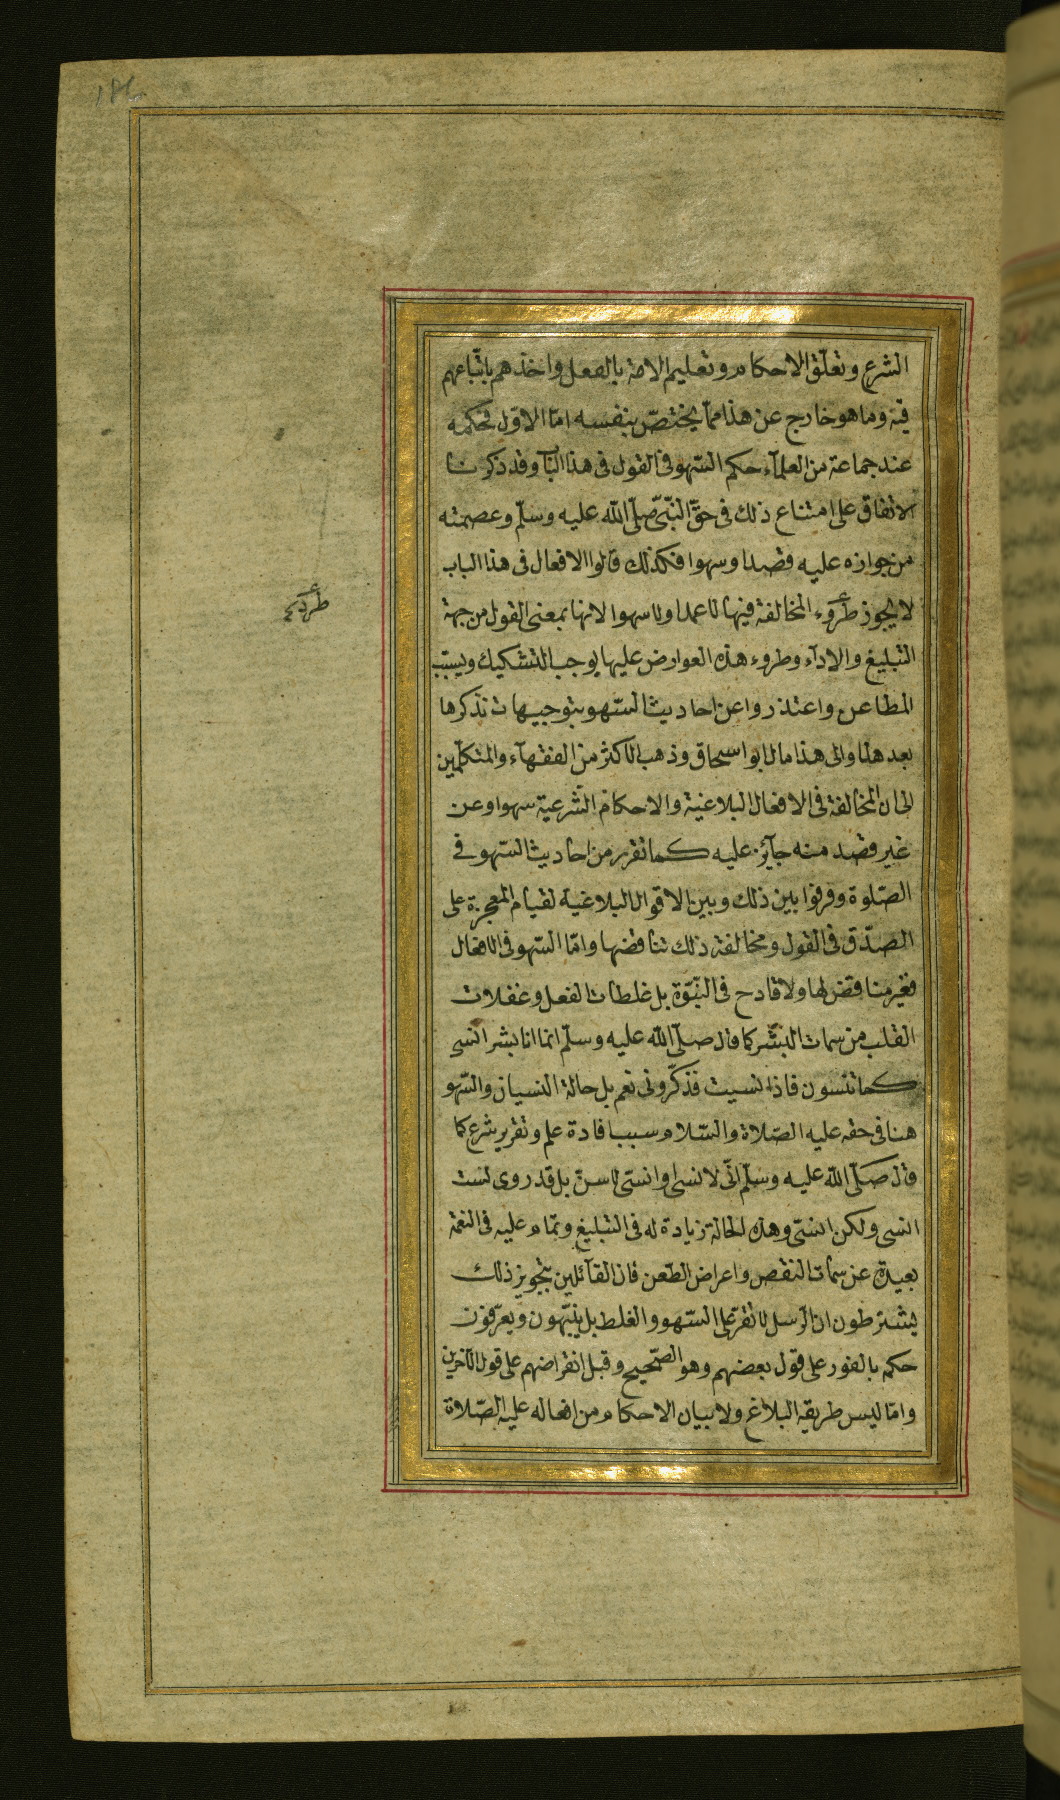 الشرع وتعلق الاحكام وتعليم الامة بالفعل واخذهم باتباعهم
فيه وما هو خارج عن هذا مما يختص بنفسه اما الاول فحكمه
عند جماعة من العلماء حكم السهو في القول في هذا الباب وقد ذكرنا
الاتفاق على امتناع ذلك في حق النبي صلى الله عليه وسلم وعصمته
من جوازه عليه قصدا وسهوا فكذلك قالوا الافعال في هذا الباب
لا يجوز طروء المخالفة فيها لا عمدا ولا سهوا لانها بمعنى القول من جهة
التبليغ والاداء وطروء هذه العوارض عليها يوجب التشكيك ويسبب
المطاعن واعتذروا عن احاديث السهو بتوجيهات نذكرها
بعد هذا والى هذا مال ابو اسحاق وذهب الاكثر من الفقهاء والمتكلمين
الى ان المخالفة في الافعال البلاغية والاحكام الشرعية سهوا وعن
غير قصد منه جائز عليه كما تقرر من احاديث السهو في
الصلوة وفرقوا بين ذلك وبين الاقوال البلاغية لقيام المعجزة على
الصدق في القول ومخالفة ذلك تناقضها واما السهو في الافعال
فغير مناقض لها ولا قادح في النبوة بل غلطات الفعل وغفلات
القلب من سمات البشر كما قال صلى الله عليه وسلم انما انا بشر انسى
كما تنسون فاذا نسيت فذكروني نعم بل حالة النسيان والسهو
هنا في حقه عليه الصلاة والسلام سبب افادة علم وتقرير شرع كما
قال صلى الله عليه وسلم اني لا نسى او انسى لاسن بل قد روى لست
انسى ولكن انسى وهذه الحالة زيادة له في التبليغ وتمام عليه في النعمة
بعيدة عن سمات النقص واعراض الطعن فان القائلين بتجويز ذلك
يشترطون ان الرسل لا تقر على السهو والغلط بل ينبهون ويعرفون
حكمه بالفور على قول بعضهم وهو الصحيح وقبل انقراضهم على قول الاخرين
واما ليس طريقه البلاغ ولا بيان الاحكام من افعاله عليه الصلاة